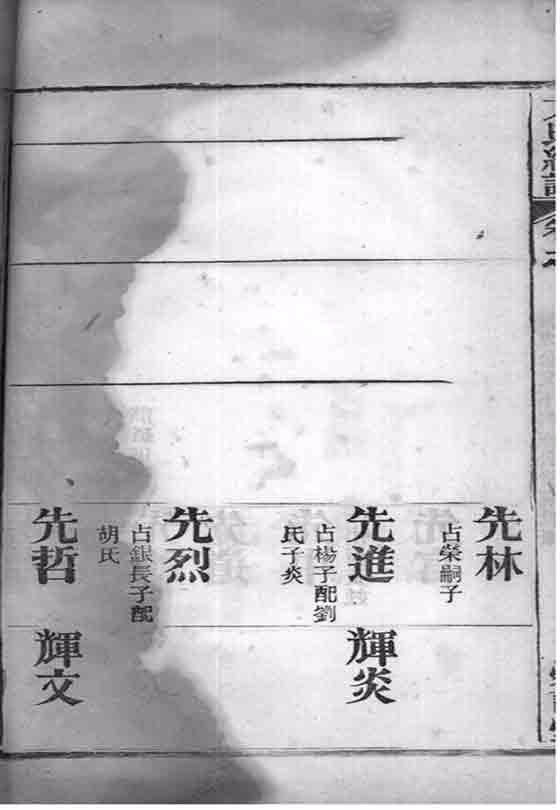 先林
占榮嗣子
先進
占楊子配劉
氏子炎
輝炎
先烈
占銀長子配
胡氏
先哲
輝文